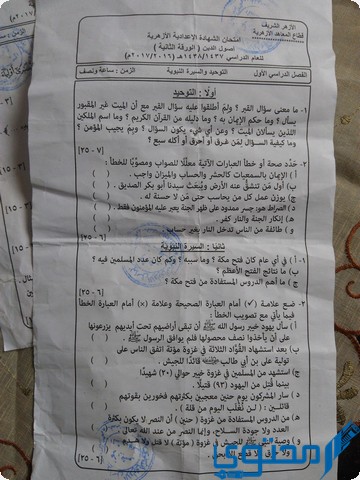 الأزهر الشريف
قطاع المعاهد الأزهرية
امتحان الشهادة الإعدادية الأزهرية
أصول الدين ( الورقة الثانية )
للعام الدراسي ١٤٣٧/١٤٣٨هـ (٢٠١٦/٢٠١٧م)
الفصل الدراسي الأول
التوحيد والسيرة النبوية
الزمن : ساعة ونصف
أولًا : التوحيد
١- ما معنى سؤال القبر ؟ ولِمَ أطلقوا عليه سؤال القبر مع أن الميت غير المقبور
يسأل ؟ وما حكم الإيمان به ؟ وما دليله من القرآن الكريم ؟ وما اسم الملكين
اللذين يسألان الميت ؟ وعن أي شيء يكون السؤال ؟ وبم يجيب المؤمن ؟
وما كيفية السؤال لمن غرق أو أحرق أو أكله سبع ؟
[٧ - ٢٥]
٢- حدد صحة أو خطأ العبارات الآتية معللًا للصواب ومصوبًا للخطأ :
أ) الإيمان بالسمعيات كالحشر والحساب والميزان واجب . ( )
ب) أول من تنشق عنه الأرض ويُبعث سيدنا أبو بكر الصديق . ( )
ج) يوزن عمل كل من يحاسب حتى من لا حسنة له . ( )
د) الصراط هو: جسر ممدود على ظهر الجنة يعبر عليه المؤمنون فقط. ( )
هـ) إنكار الجنة والنار كفر . ( )
و) طائفة من الناس تدخل النار بغير حساب . ( )
[٦ - ٢٥]
ثانيًا : السيرة النبوية
١- أ ) في أي عام كان فتح مكة ؟ وما سببه ؟ وكم كان عدد المسلمين فيه ؟
ب) ما نتائج الفتح الأعظم ؟
ج) ما أهم الدروس المستفادة من فتح مكة ؟
[٦ - ٢٥]
٢- ضع علامة (✓) أمام العبارة الصحيحة وعلامة (×) أمام العبارة الخطأ
فيما يأتي مع تصويب الخطأ :
أ) سأل يهود خيبر رسول الله ﷺ أن تبقى أراضيهم تحت أيديهم يزرعونها
على أن يأخذوا نصف محصولها فلم يوافق الرسول ﷺ . ( )
ب) بعد استشهاد القُوَّاد الثلاثة في غزوة مؤتة اتفق الناس على
تولية علي بن أبي طالب قائدًا للجيش . ( )
ج) استشهد من المسلمين في غزوة خيبر حوالي (٢٠) شهيدًا
بينما قُتل من اليهود (٩٣) قتيلًا . ( )
د) سار المشركون يوم حنين معجبين بكثرتهم فخورين بقوتهم
قائلين : ( لن نُغلب اليوم من قلة ) . ( )
هـ) من الدروس المستفادة من غزوة ( حنين ) أن النصر لا يكون بكثرة
العدد ولا جودة السلاح، وإنما النصر من عند الله تعالى ( )
و) وصية النبي ﷺ للجيش في غزوة ( مؤتة )
[٦ - ٢٥]
محتوى